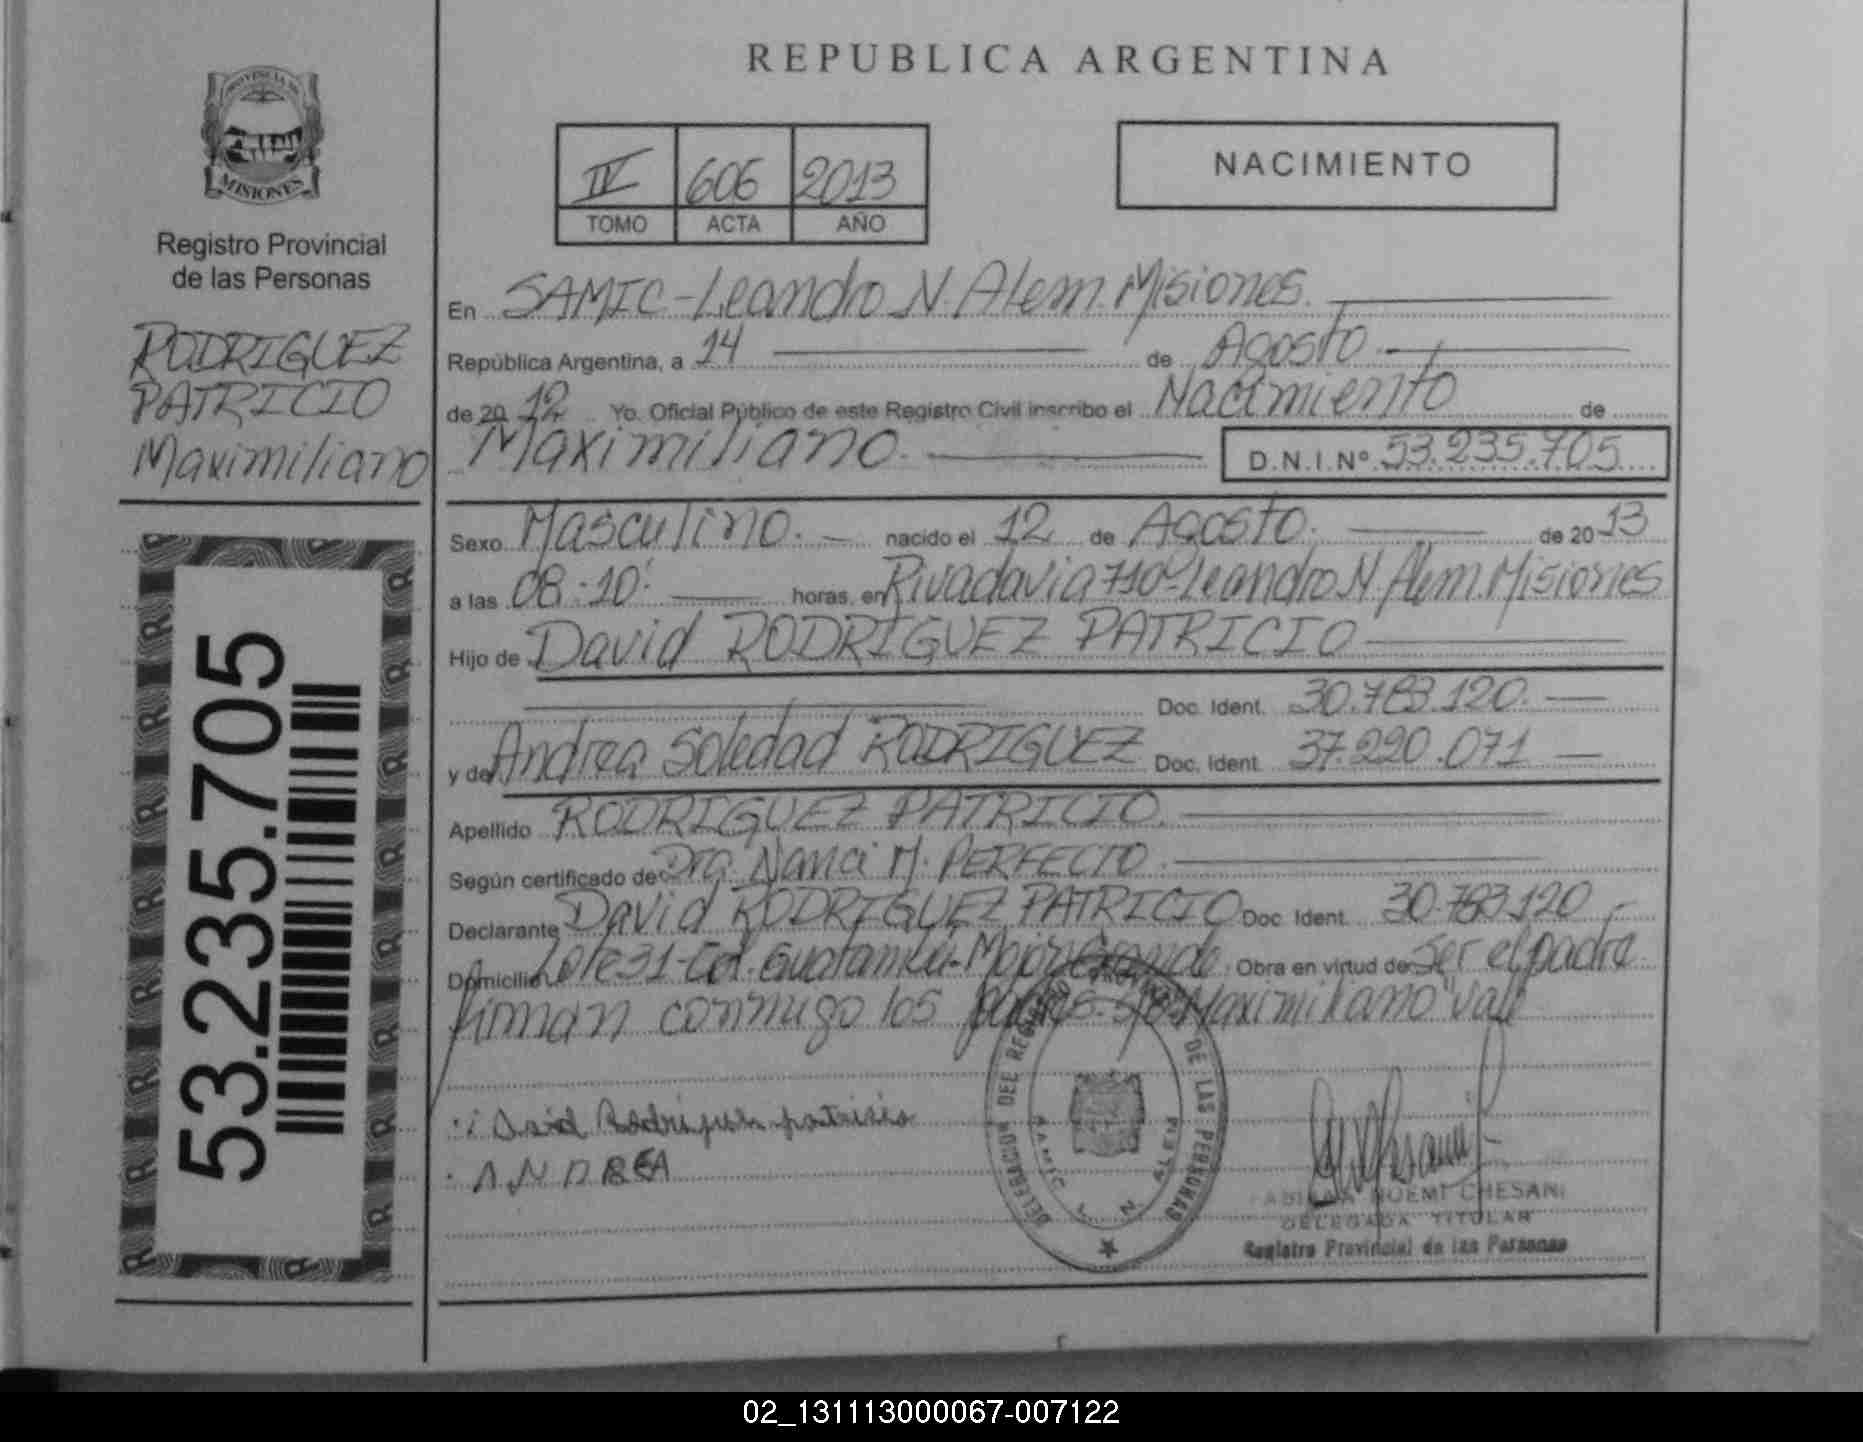 REPUBLICA ARGENTINA
PROVINCIA DE
MISIONES
Registro Provincial
de las Personas
RODRIGUEZ
PATRICIO
Maximiliano
53.235.705
IV 606 2013
TOMO ACTA AÑO
NACIMIENTO
En SAMIC-Leandro N. Alem. Misiones.
República Argentina, a 14 de Agosto
de 20 12 Yo, Oficial Público de este Registro Civil inscribo el Nacimiento de
Maximiliano. D.N.I.Nº 53.235.705
Sexo Masculino. nacido el 12 de Agosto. de 20 13
a las 08:10' horas, en Rivadavia 710-Leandro N. Alem. Misiones
Hijo de David RODRIGUEZ PATRICIO
Doc. Ident. 30.783.120.
y de Andrea Soledad RODRIGUEZ Doc. Ident. 37.220.071
Apellido RODRIGUEZ PATRICIO.
Según certificado de Dra. Nanci M. PERFECTO.
Declarante David RODRIGUEZ PATRICIO Doc. Ident. 30.783.120
Domicilio Lote 31-Col. Obra en virtud de ser el padre
firman conmigo los Maximiliano" vale
David Rodriguez patrisio
ANDREA
DELEGACION DEL REGISTRO PROVINCIAL DE LAS PERSONAS
SAMIC L. N.
FABIANA NOEMI CHESANI
DELEGADA TITULAR
Registro Provincial de las Personas
02_131113000067-007122